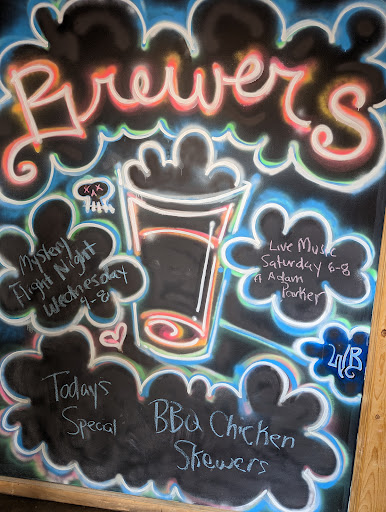 Brewers
Mystery
Flight Night
Wednesday
4-8
Live Music
Saturday 6-8
ft Adam
Parker
Todays
Special
BBQ Chicken
Skewers